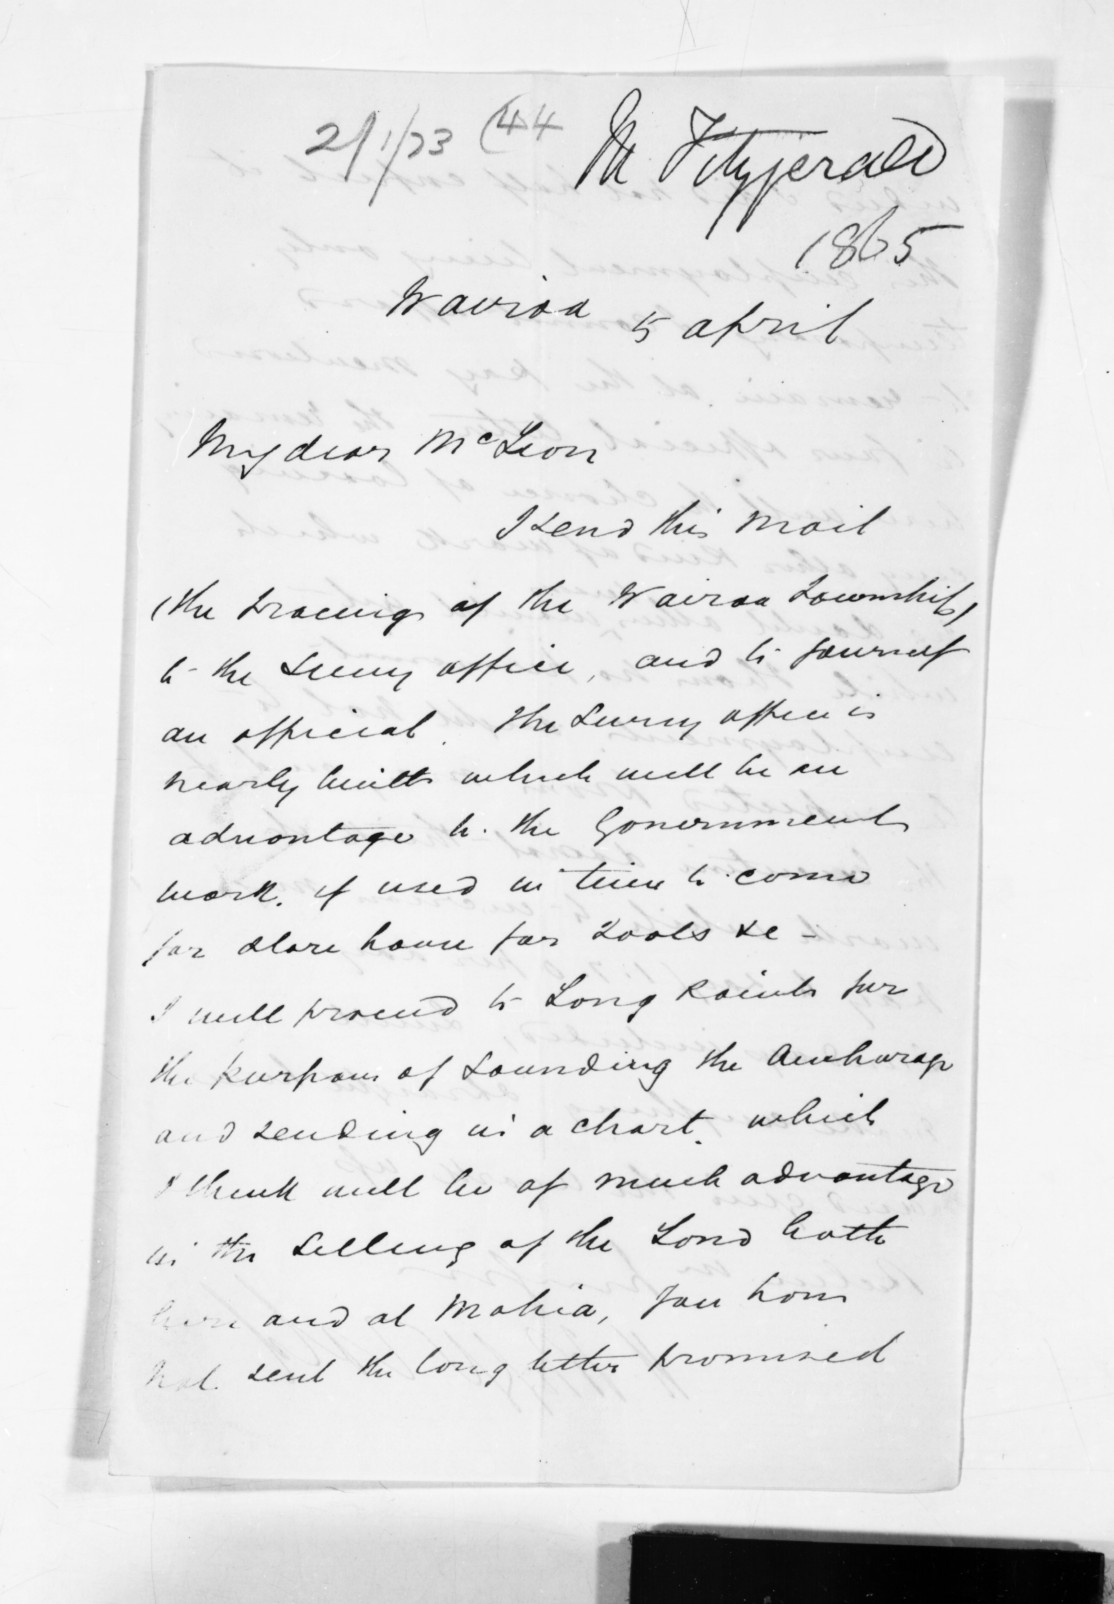 21/1/23 (44
M Fitzgerald
1865
Wairoa 5 april
My dear McLean
I send this mail
(the tracing of the Wairoa Township)
to the Survey office, and to yourself
an official. The Survey office is
nearly built which will be an
advantage to the Government
work. if used in time to come
for store house for tools &c -
I will proceed to Long Point for
the purpose of sounding the Anchorage
and sending in a chart. which
I think will be of much advantage
in the selling of the Land both
here and at Mahia, you have
not sent the long letter promised